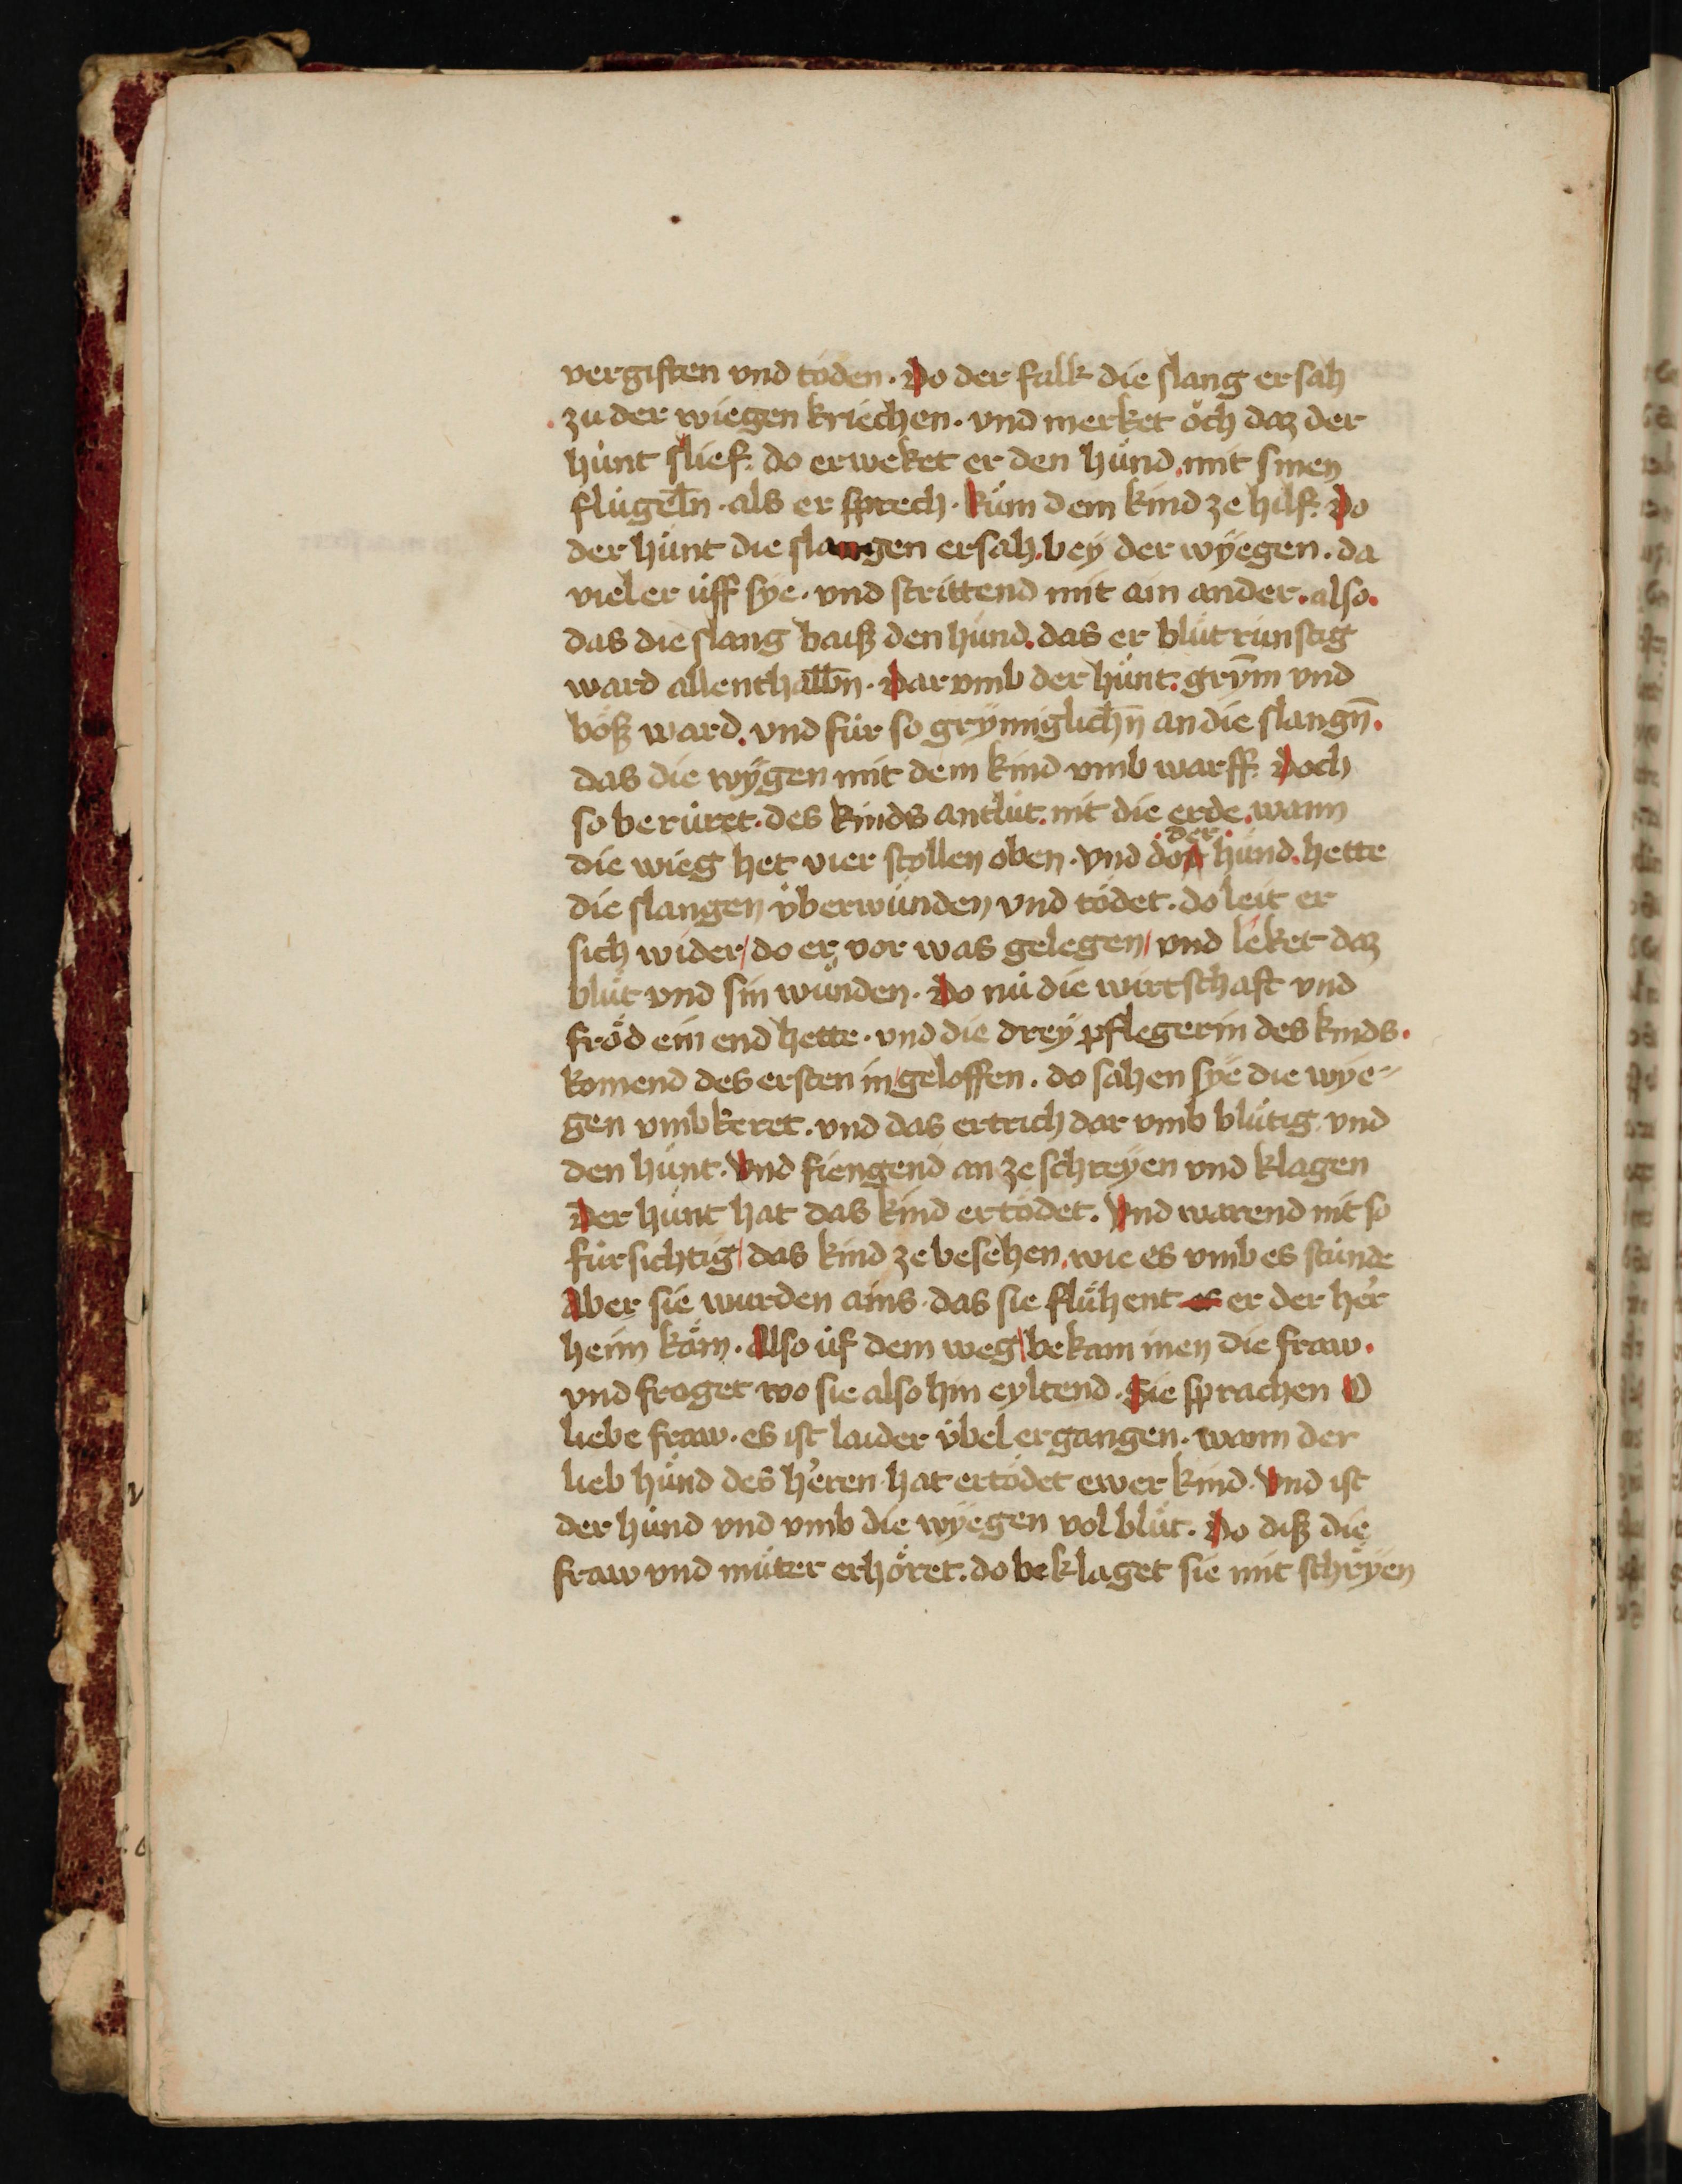 vergiften vnd töden · Do der falk die slang ersah
zu der wiegen kriechen · vnd merket och daz der
hunt slief: do erweket er den hund, mit sinen
flugeln̄ · als er sprech · kum dem kind ze hilf: Do
der hunt die slangen ersah, bey der wÿegen · da
viel er uff sÿe · vnd strittend mit ain ander · also ·
das die slang baiß den hund. das er blutrunstig
ward allenthalbn̄ · Dar vmb der hunt: grym̄ vnd
böß ward, vnd fur so grÿmiglichn̄ an die slangn̄ ·
das die wÿgen mit dem kind vmb warff: Doch
so beruret · des kinds antlut. nit die erde, wann
die wieg het vier stollen oben · vnd do · der · hund, hette
die slangen vberwunden vnd tödet · do leit er
sich wider / do er vor was gelegen / vnd leket daz
blut vnd sin wunden · Do nu die wirtschaft vnd
fröd ein end hette · vnd die dreÿ pflegerin des kinds ·
komend des ersten in geloffen · do sahen sÿe die wÿe-
gen vmbkeret · vnd das ertrich dar vmb blutig vnd
den hunt · Vnd fiengend an ze schreÿen vnd klagen
Der hunt hat das kind ertödet · Vnd warend nit so
fursichtig / das kind ze besehen, wie es vmb es stunde
Aber sie wurden ains · das sie fluhent er der her
heim käm · Also uf dem weg / bekam inen die fraw ·
vnd froget wo sie also hin eyltend · Sie sprachen O
liebe fraw · es ist laider vbel ergangen · wann der
lieb hund des heren hat ertödet ewer kind · Vnd ist
der hund vnd vmb die wÿegen vol blut · Do diß die
fraw vnd muter erhöret · do beklaget sie mit schrÿen